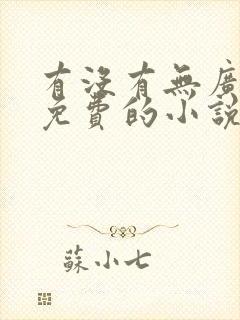 有沒有無廣
免費的小說
蘇小七